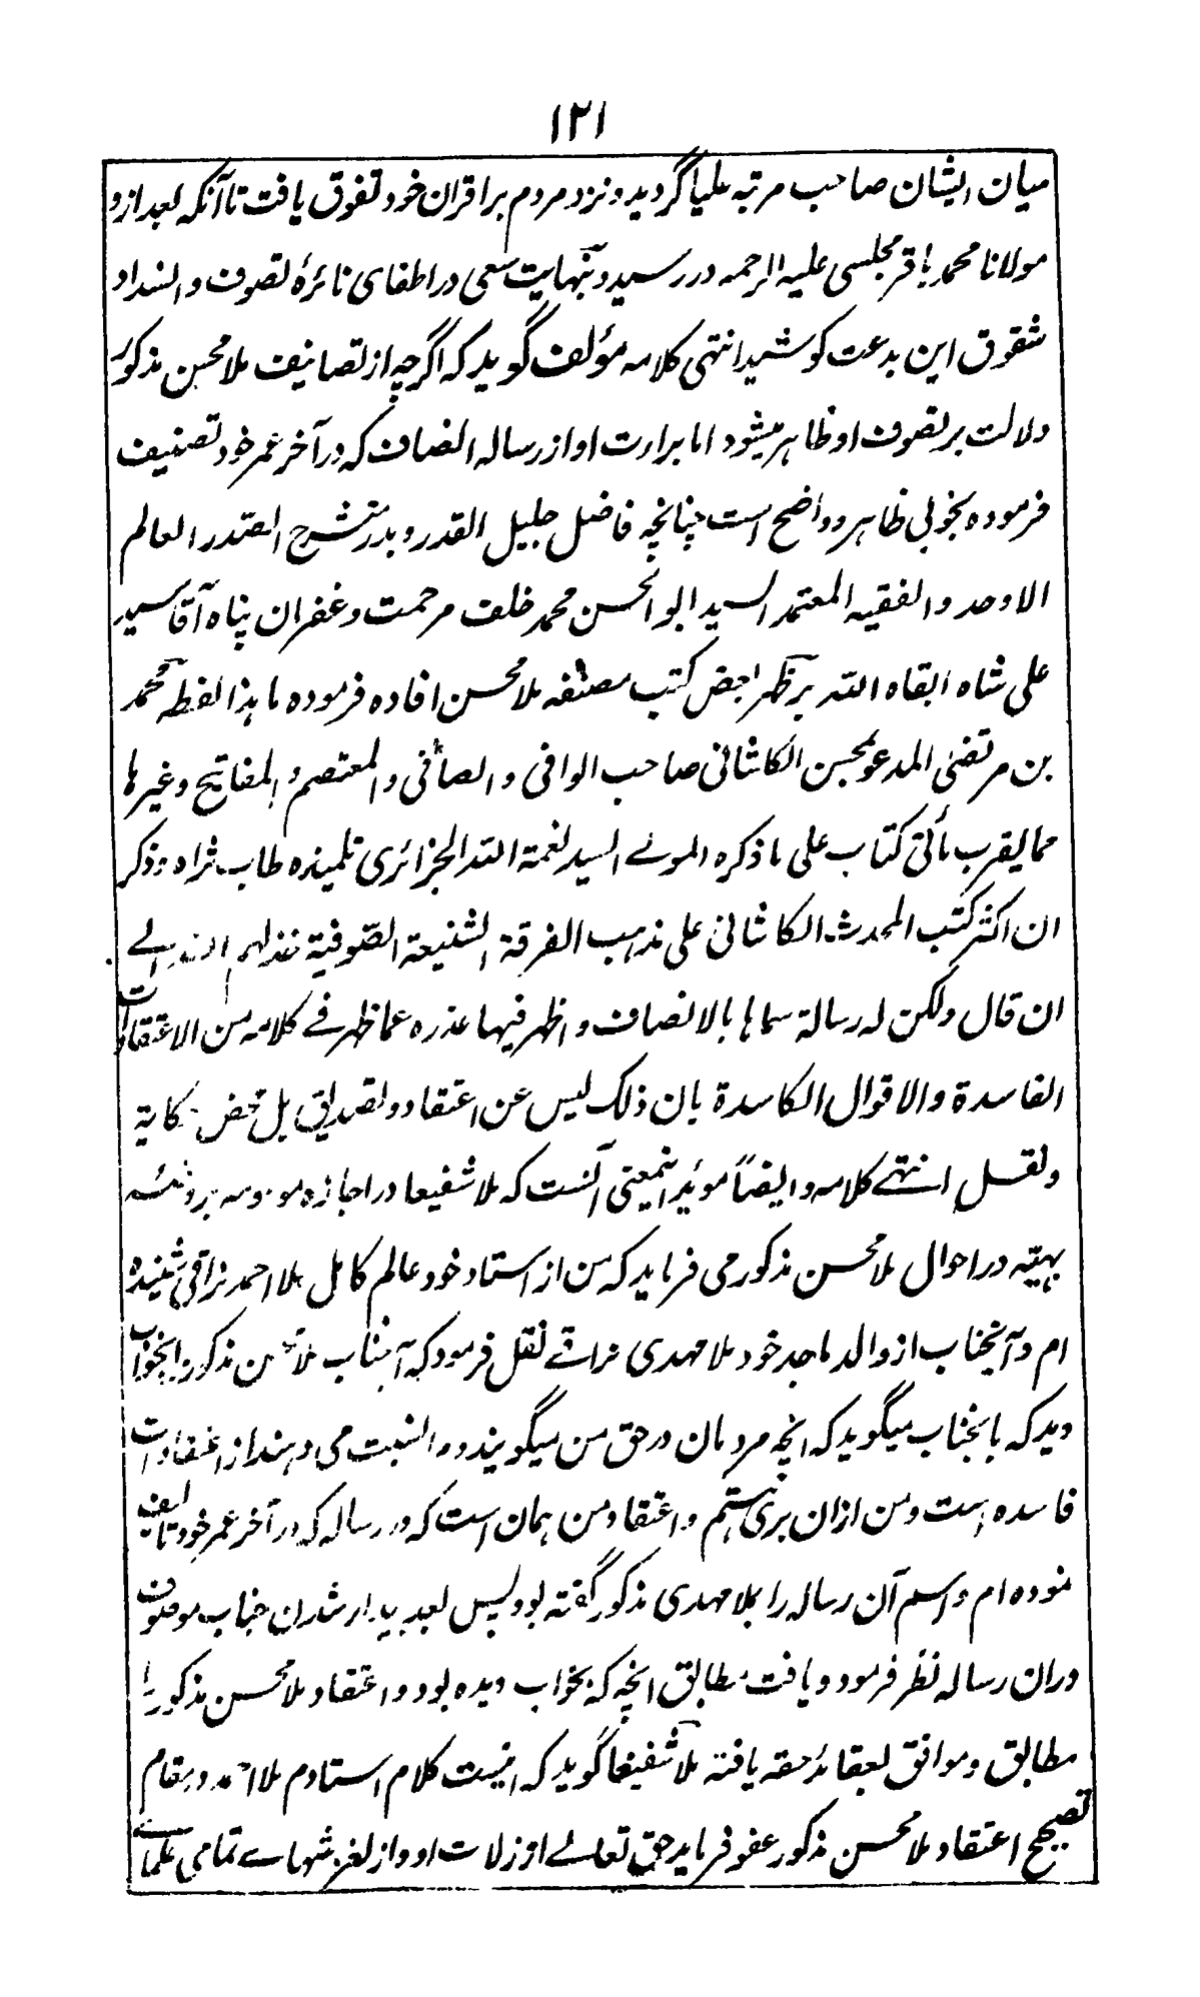 ۱۲۱
میان ایشان صاحب مرتبه علیا گردید و نزد مردم بر اقران خود تفوق یافت تا آنکه بعد ازو
مولانا محمد باقر مجلسی علیه الرحمه در رسید و بنهایت سعی در اطفای نائرهٔ تصوف و انسداد
شقوق این بدعت کوشید انتهی کلامه مؤلف گوید که اگرچه از تصانیف ملا محسن مذکور
دلالت بر تصوف او ظاهر میشود اما براءت او از رساله انصاف که در آخر عمر خود تصنیف
فرموده بخوبی ظاهر و واضح است چنانچه فاضل جلیل القدر و بدر منشرح الصدر العالم
الاوحد والفقیه المعتمد السید ابوالحسن محمد خلف مرحمت و غفران پناه آقا سید
علی شاه ابقاه الله بر ظهر بعض کتب مصنفه ملا محسن افاده فرموده ما هذا لفظه محمد
بن مرتضی المدعو بمحسن الکاشانی صاحب الوافی و الصافی والمعتصم و المفاتیح و غیرها
مما یقرب مأتی کتاب علی ما ذکره المولے السید نعمة الله الجزائری تلمیذه طاب ثراه و ذکر
ان اکثر کتب المحدث الکاشانی علی مذهب الفرقة الشنیعة الصّوفیة خذلهم الله الے
ان قال ولکن له رسالة سماها بالانصاف و اظهر فیها عذره عما ظهر فے کلامه من الاعتقادات
الفاسدة والاقوال الکاسدة بان ذلک لیس عن اعتقاد و تصدیق بل محض حکایة
و نقل انتهے کلامه و ایضاً مؤید اینمعنی آنست که ملا شفیعا در اجازه موسومه بروضه
بهیّه در احوال ملا محسن مذکور می فرماید که من از استاد خود عالم کامل ملا احمد نراقی شنیده
ام و آنجناب از والد ماجد خود ملا مهدی نراقے نقل فرمود که آنجناب ملا محسن مذکور را بخواب
دید که با بنجناب میگوید که انچه مردمان در حق من میگویند و نسبت می دهند از اعتقادات
فاسده است و من ازان بری هستم و اعتقاد من همان است که در رساله که در آخر عمر خود تالیف
نموده ام و اسم آن رساله را بملا مهدی مذکور گفته بود پس بعد بیدار شدن جناب موصوف
دران رساله نظر فرمود و یافت مطابق انچه که بخواب دیده بود و اعتقاد ملا محسن مذکور را
مطابق و موافق بعقائد حقه یافته ملا شفیعا گوید که اینست کلام استادم ملا احمد در مقام
تصحیح اعتقاد ملا محسن مذکور عفو فرماید حق تعالے از زلات او و از لغزشهاے تمامی علماے